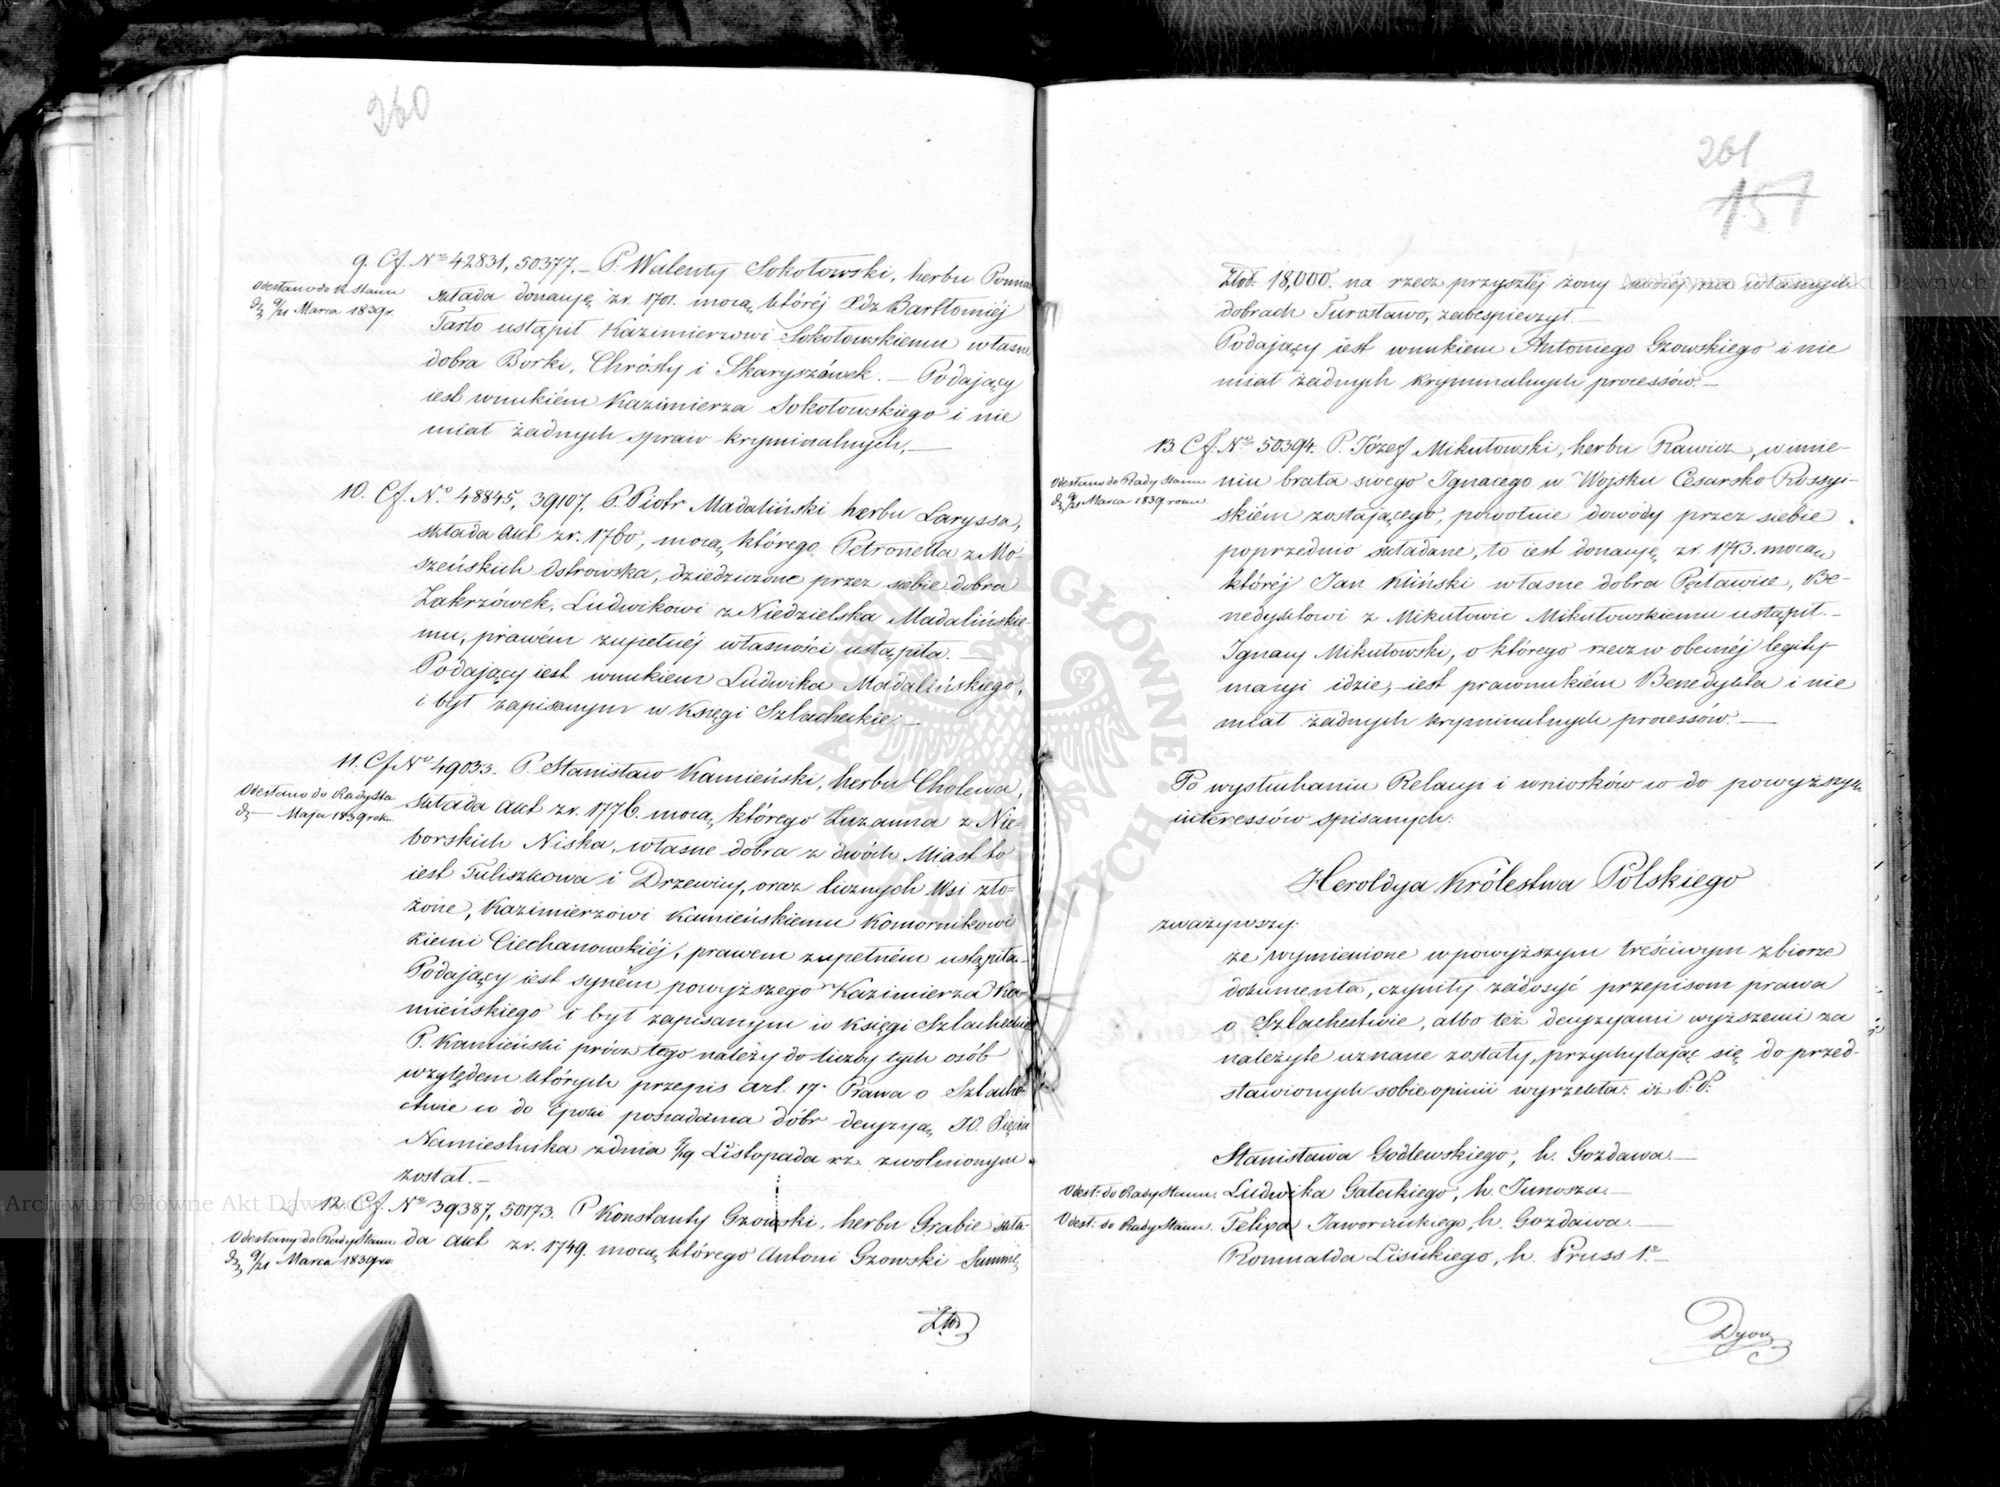 260
9. Cf. Nº 42831, 50377. – P. Walenty Sokołowski, herbu Pomian
Odesłano do R. Stanu
składa donacyę z r. 1701. mocą któréj Xdz Bartłomiéj
d. 9/21 Marca 1839 r.
Tarło ustąpił Kazimierzowi Sokołowskiemu własne
dobra Borki, Chrósty i Skaryszówek. – Podający
iest wnukiém Kazimierza Sokołowskiego i nie
miał żadnych spraw kryminalnych. –
10. Cf. Nº 48845, 39107, P. Piotr Madaliński herbu Laryssa,
składa Akt z r. 1760, mocą którego Petronella z Mo-
szeńskich Ostrowska, dziedziczone przez siebie dobra
Zakrzówek, Ludwikowi z Niedzielska Madalińskie-
mu, prawém zupełnéj własności ustąpiła. –
Podający iest wnukiem Ludwika Madalińskiego,
i był zapisanym w Księgi Szlacheckie. –
11. Cf. Nº 49033. P. Stanisław Kamieński, herbu Cholewa,
Odesłano do Rady Sta.
składa Akt z r. 1776. mocą którego Zuzanna z Nie-
d. – Maja 1839 roku
borskich Niska, własne dobra z dwóch Miast to
iest Tuliszkowa i Drzewicy, oraz licznych Wsi zło-
żone, Kazimierzowi Kamieńskiemu Komornikowi
Ziemi Ciechanowskiéj, prawem zupełném ustąpiła.
Podający iest syném powyższego Kazimierza Ka-
mieńskiego i był zapisanym w Księgi Szlacheckie
P. Kamieński prócz tego należy do liczby tych osób
względem których przepis art. 17. Prawa o Szlache-
ctwie co do Epoki posiadania dóbr decyzyą JO. Xięcia
Namiestnika z dnia 7/19 Listopada r.z. zwolnionym
został. –
12. Cf. Nº 39387, 50173. P Konstanty Gzowski, herbu Grabie skła-
Odesłany do Rady Stanu
da Akt z r. 1749. mocą którego Antoni Gzowski Summę
d. 9/21 Marca 1839 ro
Złtd
261
157
Złod: 18,000. na rzecz przyszłéj żony swoiéj, na własnych
dobrach Turosławo, zabespieczył. –
Podający iest wnukiem Antoniego Gzowskiego i nie
miał żadnych kryminalnych processów. –
13. Cf. Nº 50394. P. Józef Mikułowski, herbu Rawicz, w imie-
Odesłano do Rady Stanu
niu brata swego Ignacego w Wojsku Cesarsko Rossyi-
d. 9/21 Marca 1839 roku
skiém zostającego, powołuie dowody przez siebie
poprzednio składane, to iest donacyę z r. 1713. mocą
któréj Jan Kliński własne dobra Pęcławice, Be-
nedyktowi z Mikułowic Mikułowskiemu ustąpił. –
Ignacy Mikułowski, o którego rzecz w obecnéj legity-
macyi idzie, iest prawnukiém Benedykta i nie
miał żadnych kryminalnych processów. –
Po wysłuchaniu Relacyi i wniosków co do powyższych
interessów spisanych:
Heroldya Królestwa Polskiego
zważywszy:
że wymienione w powyższym treściwym zbiorze
dokumenta, czyniły zadosyć przepisom prawa
o Szlachectwie, albo też decyzyami wyższemi za
należyte uznane zostały, przychylając się do przed-
stawionych sobie opinii wyrzekła: iż P.P.
Stanisława Godlewskiego, h. Gozdawa. –
Odesł: do Rady Stanu. Ludwika Gałeckiego, h. Junosza. –
Odesł: do Rady Stanu. Felipa Jawornickiego, h. Gozdawa. –
Romualda Lisickiego, h. Pruss 1º –
Archiwum Główne Akt Dawnych
Archiwum Główne Akt Dawnych